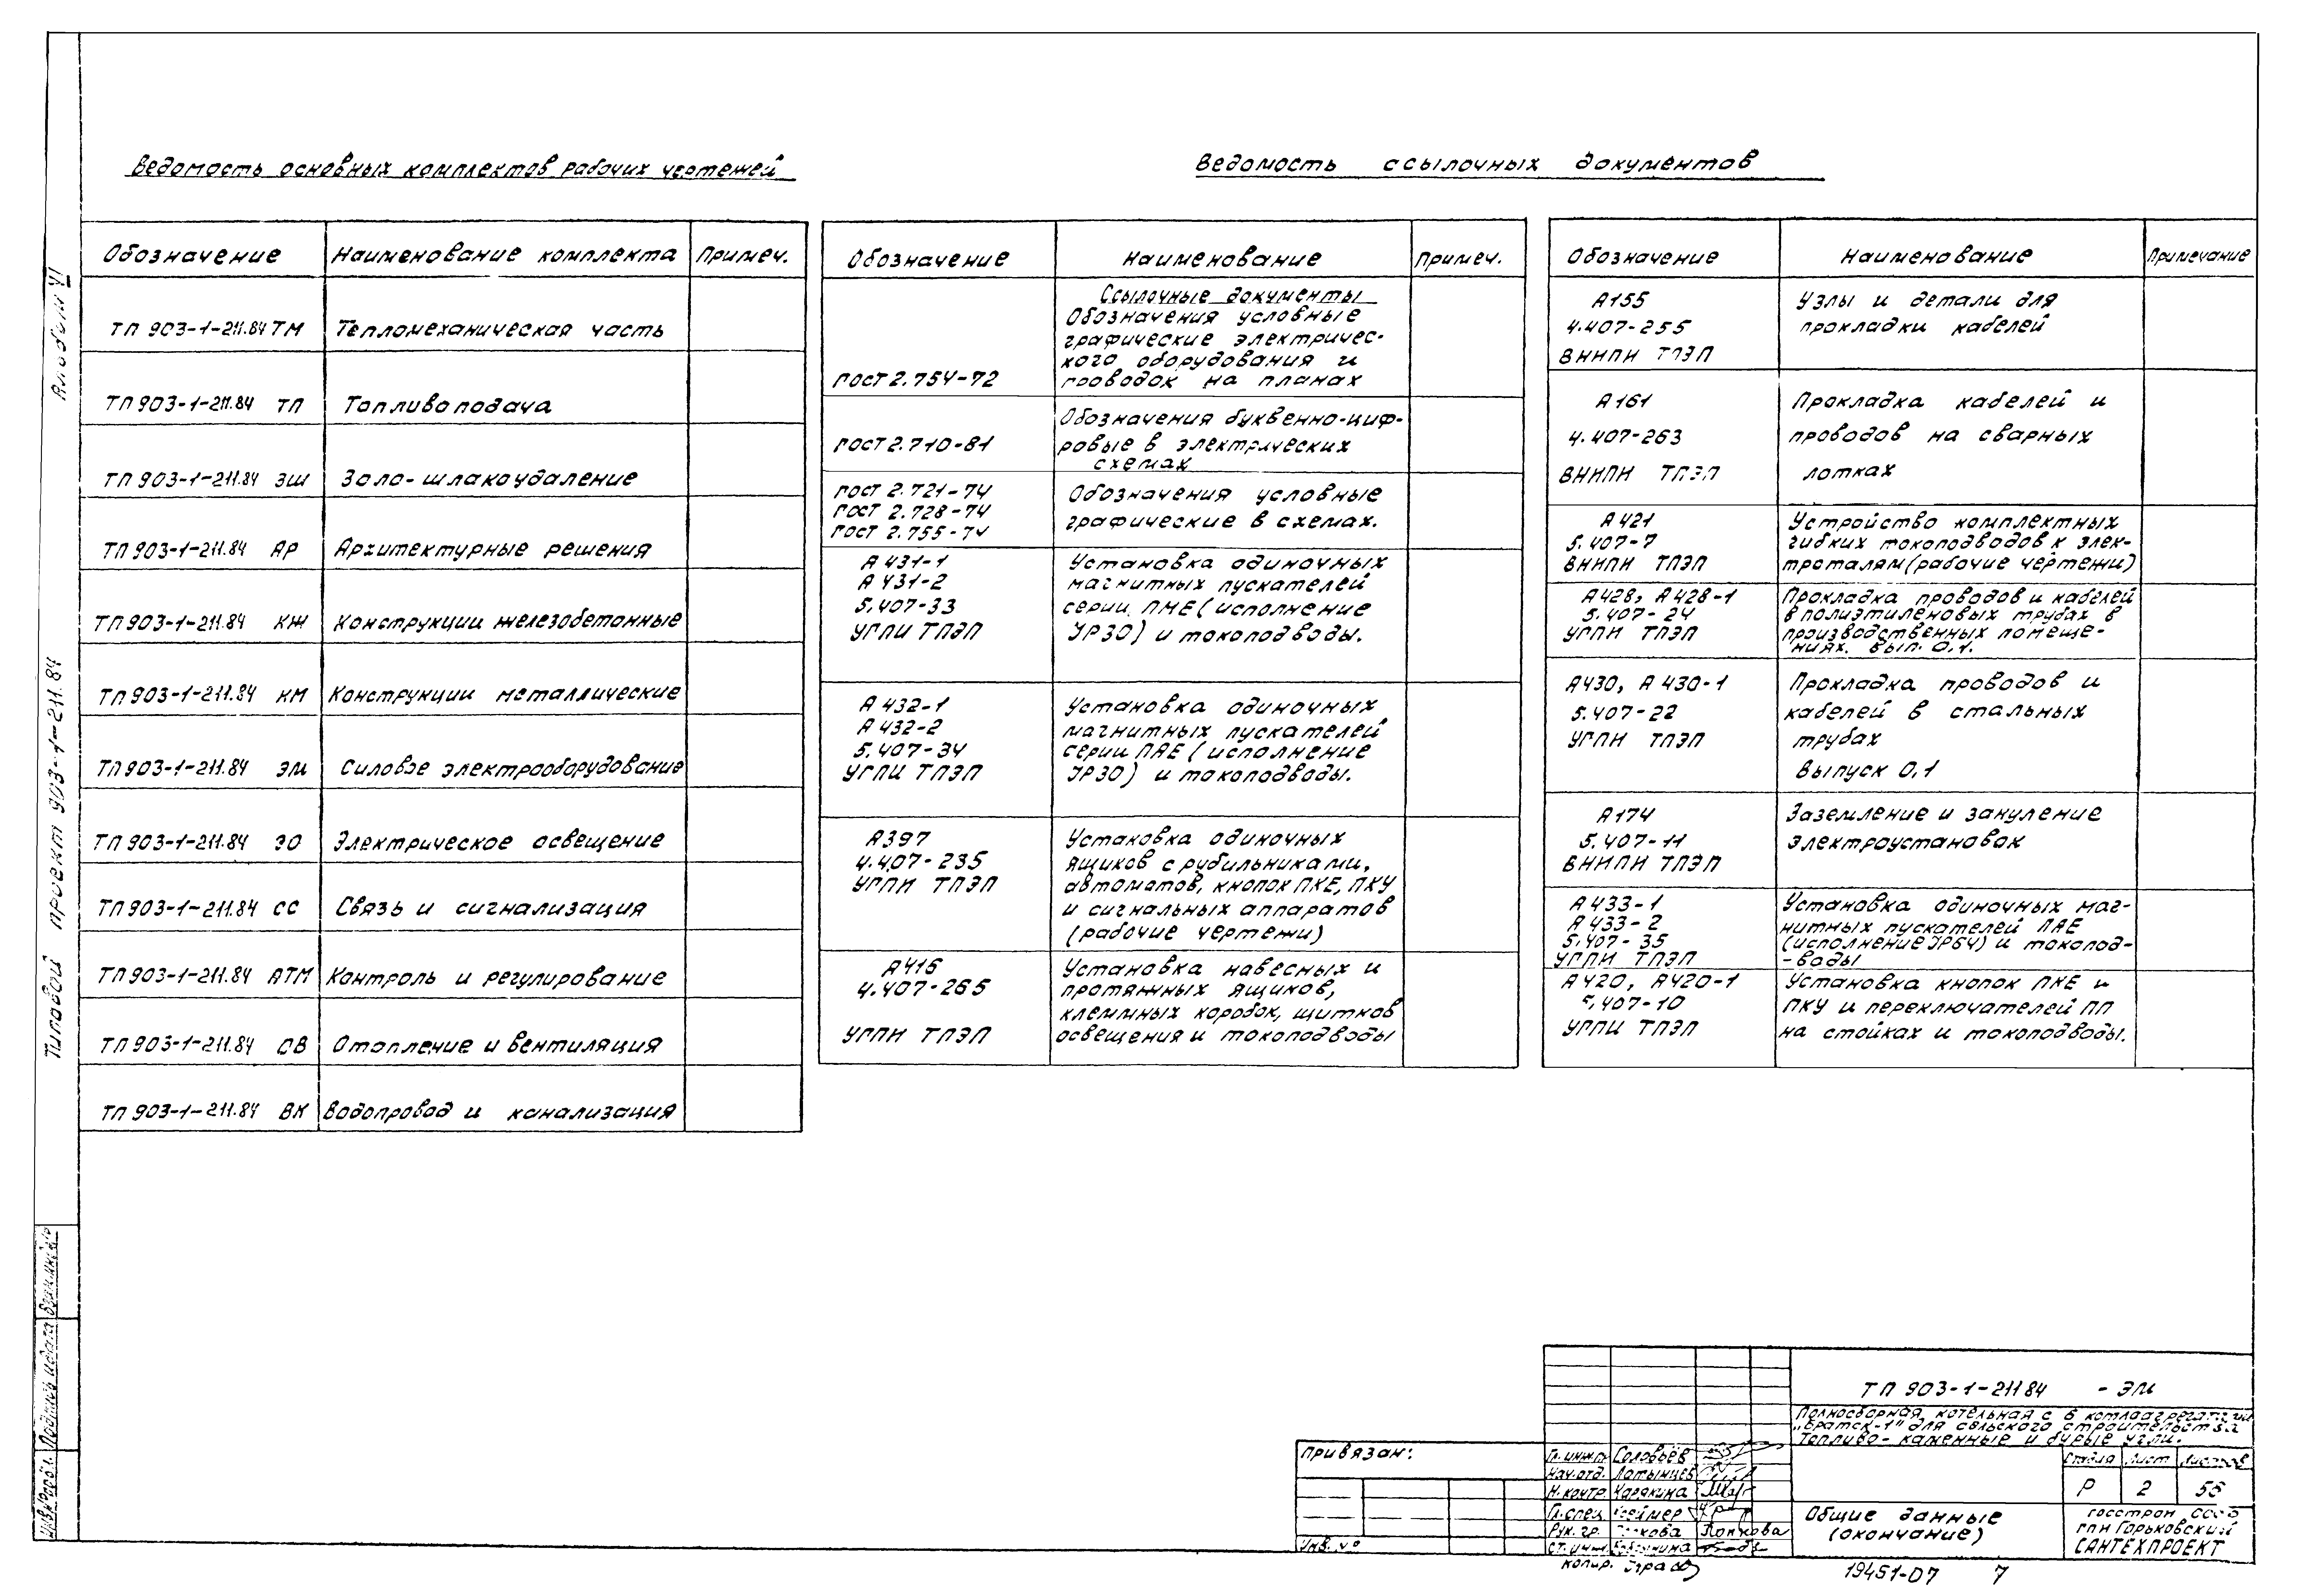 Ведомость основных комплектов рабочих чертежей
Обозначение Наименование комплекта Примеч.
ТП 903-1-211.84 ТМ Тепломеханическая часть
ТП 903-1-211.84 ТП Топливоподача
ТП 903-1-211.84 ЗШ Золо-шлакоудаление
ТП 903-1-211.84 АР Архитектурные решения
ТП 903-1-211.84 КЖ Конструкции железобетонные
ТП 903-1-211.84 КМ Конструкции металлические
ТП 903-1-211.84 ЭМ Силовое электрооборудование
ТП 903-1-211.84 ЭО Электрическое освещение
ТП 903-1-211.84 СС Связь и сигнализация
ТП 903-1-211.84 АТМ Контроль и регулирование
ТП 903-1-211.84 ОВ Отопление и вентиляция
ТП 903-1-211.84 ВК Водопровод и канализация
Ведомость ссылочных документов
Обозначение Наименование Примеч.
Ссылочные документы
Обозначения условные
графические электричес-
кого оборудования и
ГОСТ 2.754-72 проводок на планах
Обозначения буквенно-циф-
ГОСТ 2.710-81 ровые в электрических
схемах
ГОСТ 2.721-74 Обозначения условные
ГОСТ 2.728-74
ГОСТ 2.755-74 графические в схемах.
А 431-1 Установка одиночных
А 431-2 магнитных пускателей
5.407-33 серии ПМЕ (исполнение
УГПИ ТПЭП УР30) и токоподводы.
А 432-1 Установка одиночных
А 432-2 магнитных пускателей
5.407-34 серии ПАЕ (исполнение
УГПИ ТПЭП УР30) и токоподводы.
А397 Установка одиночных
4.407-235 ящиков с рубильниками,
УГПИ ТПЭП автоматов, кнопок ПКЕ, ПКУ
и сигнальных аппаратов
(рабочие чертежи)
А416 Установка навесных и
4.407-265 протяжных ящиков,
клеммных коробок, щитков
УГПИ ТПЭП освещения и токоподводы
Обозначение Наименование Примечание
А155 Узлы и детали для
4.407-255 прокладки кабелей
ВНИПИ ТПЭП
А161 Прокладка кабелей и
4.407-263 проводов на сварных
ВНИПИ ТПЭП лотках
А421 Устройство комплектных
5.407-7 гибких токоподводов к элек-
ВНИПИ ТПЭП троталям (рабочие чертежи)
А428, А428-1 Прокладка проводов и кабелей
5.407-24 в полиэтиленовых трубах в
УГПИ ТПЭП производственных помеще-
ниях. вып. 0,1.
А430, А 430-1 Прокладка проводов и
5.407-22 кабелей в стальных
УГПИ ТПЭП трубах
Выпуск 0,1
А174 Заземление и зануление
5.407-11 электроустановок
ВНИПИ ТПЭП
А 433-1 Установка одиночных маг-
А 433-2 нитных пускателей ПАЕ
5.407-35 (исполнение УР54) и токопод-
УГПИ ТПЭП -воды
А420, А420-1 Установка кнопок ПКЕ и
5.407-10 ПКУ и переключателей ПП
УГПИ ТПЭП на стойках и токоподводы.
Альбом VI
Типовой проект 903-1-211.84
Взам.инв.№
Подпись и дата
Инв.№ подл.
Привязан:
Инв. №
Гл. инж.п. Соловьёв
Нач.отд. Латынцев
Н.контр. Карякина
Гл.спец.
Рук. гр.
Ст. инж.
копир.
ТП 903-1-21184 - ЭМ
Полносборная котельная с 6 котлоагрегатами
„Братск-1" для сельского строительства
Топливо - каменные и бурые угли.
Стадия Лист Листов
Р 2 55
Общие данные
(окончание)
госстрой СССР
ГПИ Горьковский
САНТЕХПРОЕКТ
19451-07 7